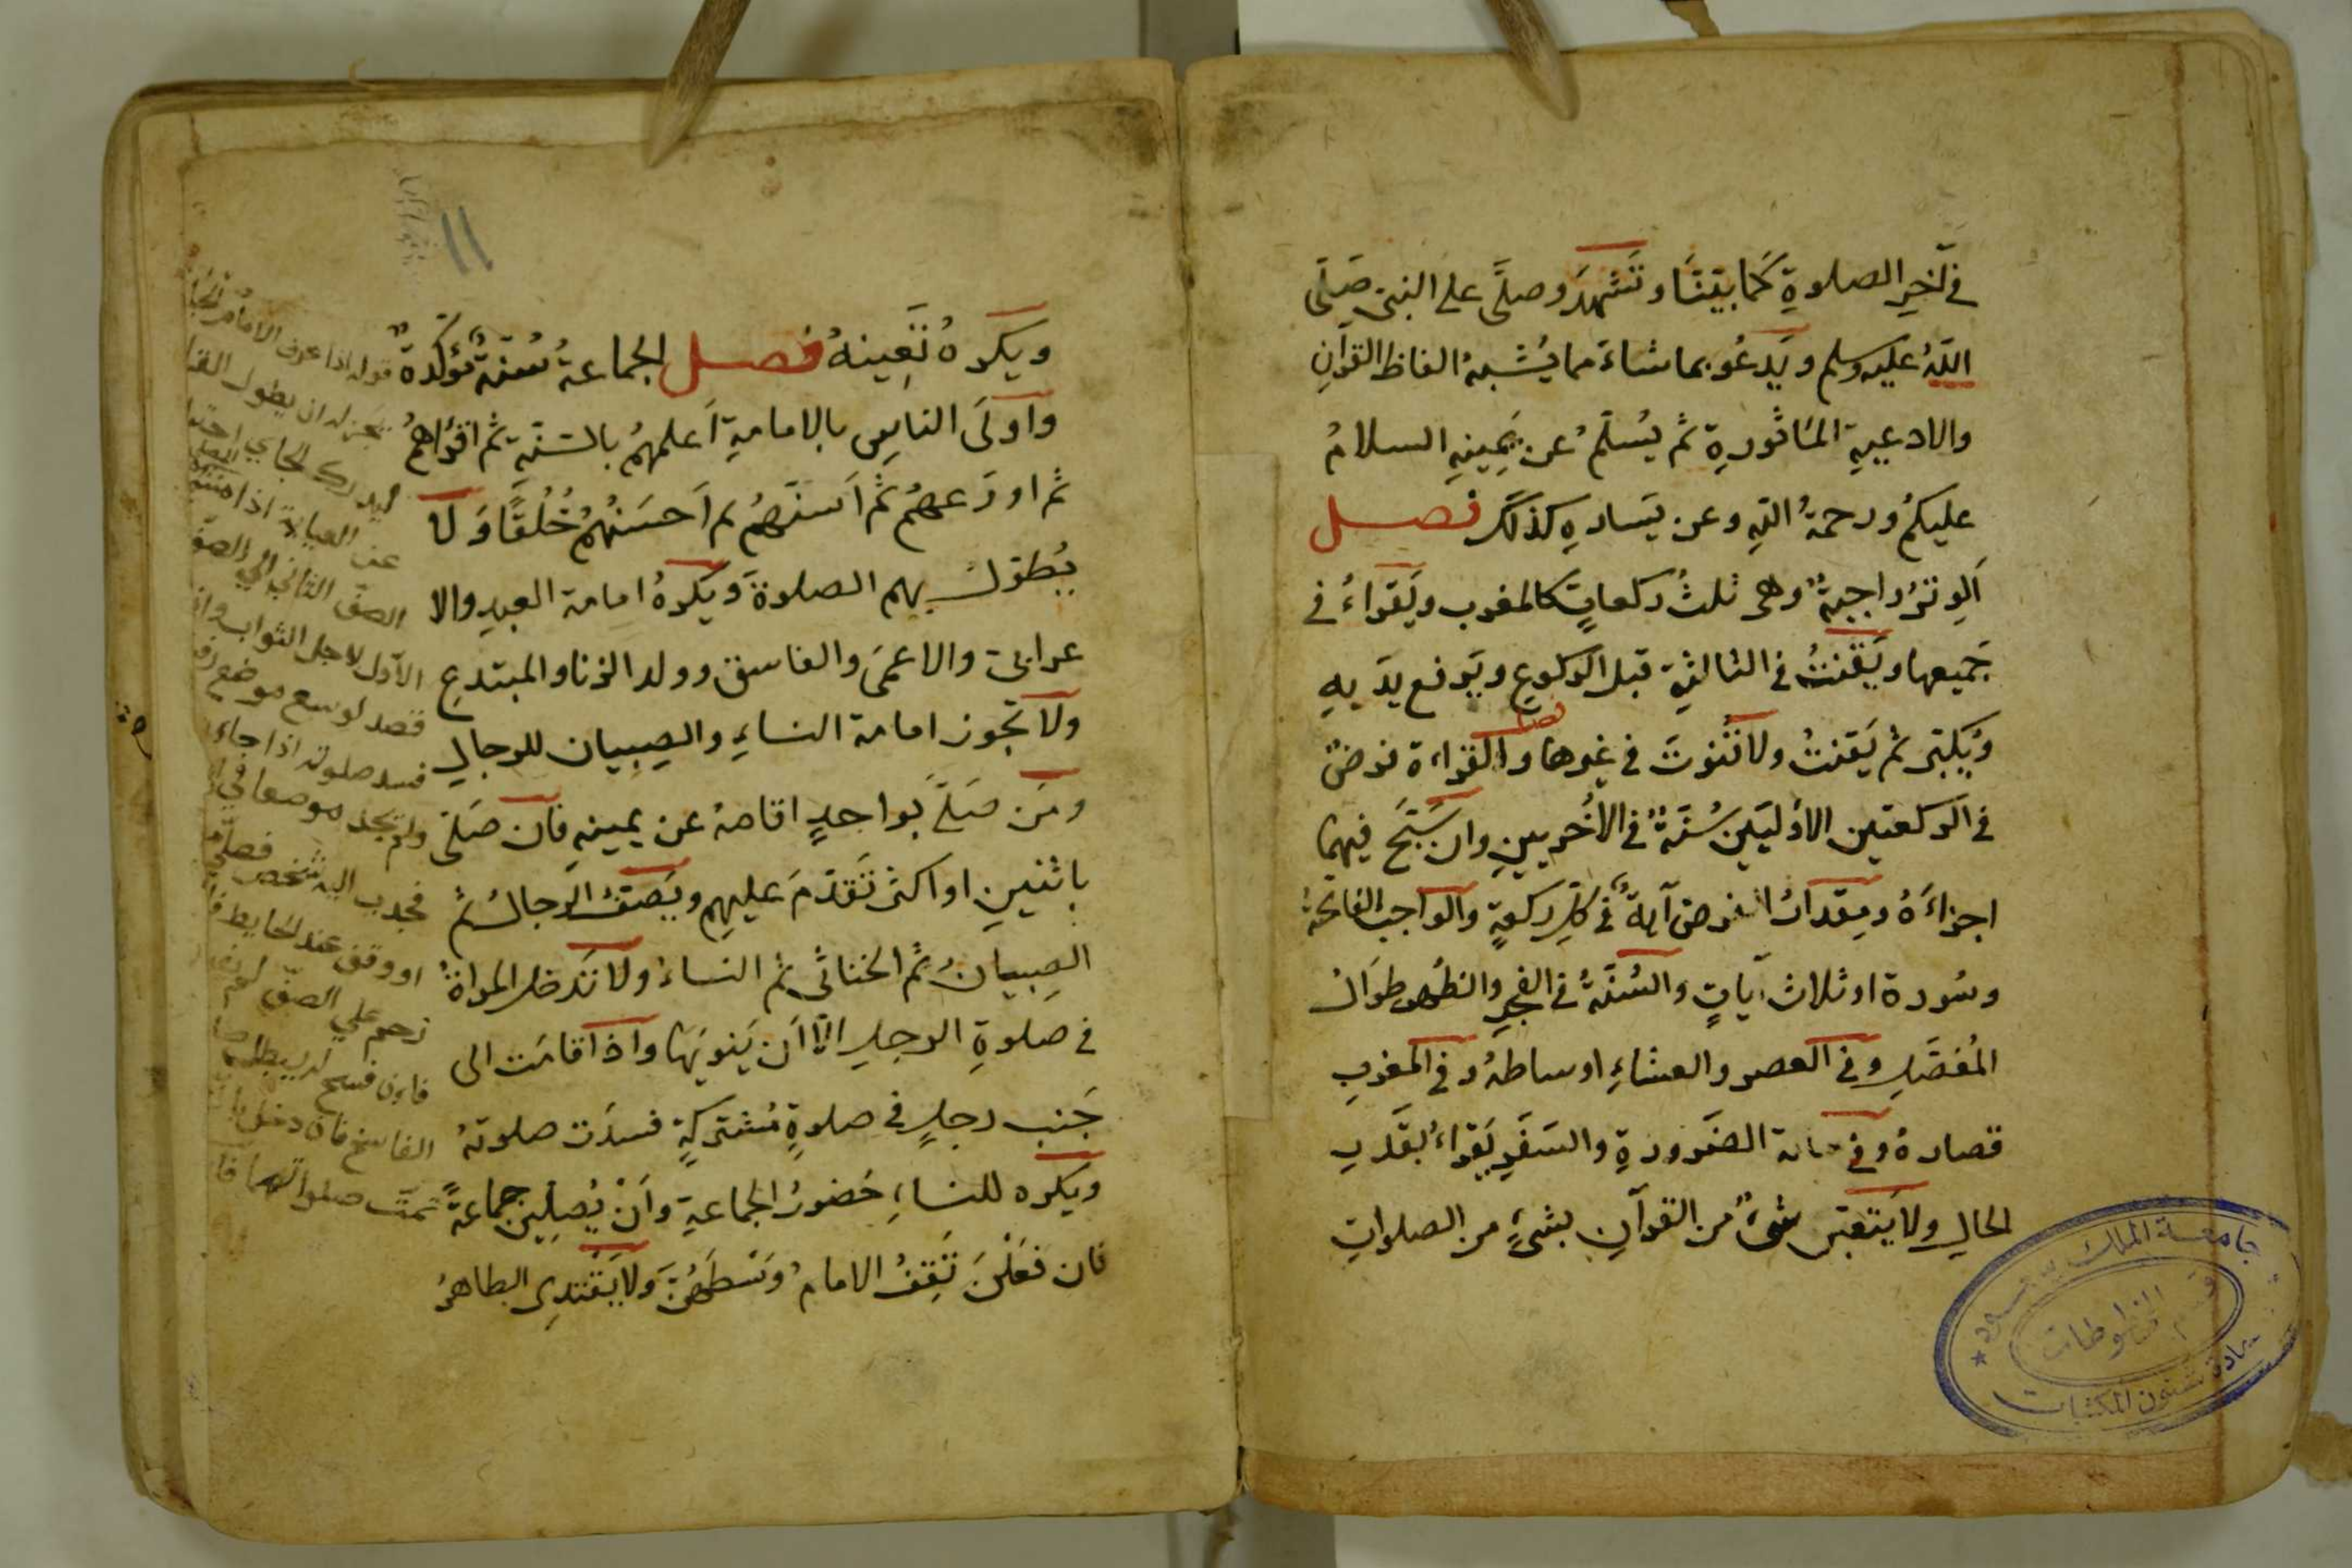 في آخِرِ الصلوةِ كَما بيّنّا وتَشهدَ وصلّى على النبى صَلّى
اللّهُ عليه وسلم ويَدعُو بما شاءَ مما يُشبهُ الفاظ القرآنِ
والادعيةِ المأثورةِ ثم يُسلّمُ عن يَمِينِهِ السلامُ
عليكمُ ورحمةُ اللهِ وعن يَسارهِ كذلكَ فصل
اَلوترُ واجبةٌ وهى ثلثُ ركعاتٍ كالمغرب ويَقراءُ فى
جَميعها ويَقنتُ فى الثالثةِ قبل الركوعِ ويَرفع يدَيهِ
ويُكبّر ثم يَقنتُ ولا قنوتَ فى غيرها فصل والقراءة فرضٌ
فى الركعتين الاُوليَينِ سُنّةٌ فى الاُخريينِ وان سَبّحَ فيهما
اجزاءَهُ ومِقدارُ الفرض آيةٌ فى كلِّ ركعةٍ والواجب الفاتحة
وسُورة او ثلاث آياتٍ والسُنّةُ فى الفجرِ والظُهرِ طوَالُ
المُفصّلِ وفى العصر والعشاءِ اوساطهُ وفى المغربِ
قصارهُ وفى حالة الضَرورةِ والسَفَرِ يَقراءُ بقَدرِ
الحالِ ولا يَتعيّن شىءٌ من القرآنِ بشىءٍ من الصلواتِ
جامعة الملك سعود
قسم المخطوطات
عمادة شئون المكتبات
١١
ويكرهُ تَعيينهُ فصل الجماعةُ سُنّةٌ مُؤكّدةٌ
واَولَى الناسِ بالامامةِ اَعلمهُم بالسّنّةِ ثم اقرؤهمُ
ثم اورَعهُم ثم اَسنّهُم ثم اَحسَنُهُم خُلُقًا وَلا
يُطوّل بهم الصلوةَ ويَكرهُ امامة العبدِ والا
عرابى والاعمَى والفاسق وولد الزنا والمبتدعِ
ولا تجوز امامة النساءِ والصِبيان للرجالِ
ومَن صَلّى بواحدٍ اقامهُ عن يمينهِ فان صَلّى
باثنينِ او اكثر تَقدّمَ عليهِم ويَصفُّ الرجالُ ثم
الصِبيانُ ثم الخناثى ثم النساءُ ولا تَدخل المراةُ
فى صلوةِ الرجلِ الّا اَن يَنويَهَا واذا قامَت الى
جَنب رجلٍ فى صلوةٍ مُشتركةٍ فسدَت صلوتهُ
ويكره للنساءِ حُضورُ الجماعةِ واَنْ يُصلِينَ جماعةً
فان فعَلْنَ تَقِفُ الامامُ وَسْطَهُنَّ وَلا يَقْتدِى الطاهرُ
قوله اذا عرف الامام
يجز له ان يطول القرا
ليدرك الجاي
عن العيابة اذا
الصف الثاني الي الصف
الاول لاجل الثواب وان
قصد لوسع موضع
فسد صلوته اذا جاء
ولم يجد موضعا في
فجدب اليه شخص فصلي
او وقف عند الحايط
زحم علي الصف
فان فسح لم يبطل
الفاسخ فان دخل
تمت صلواتهما فا